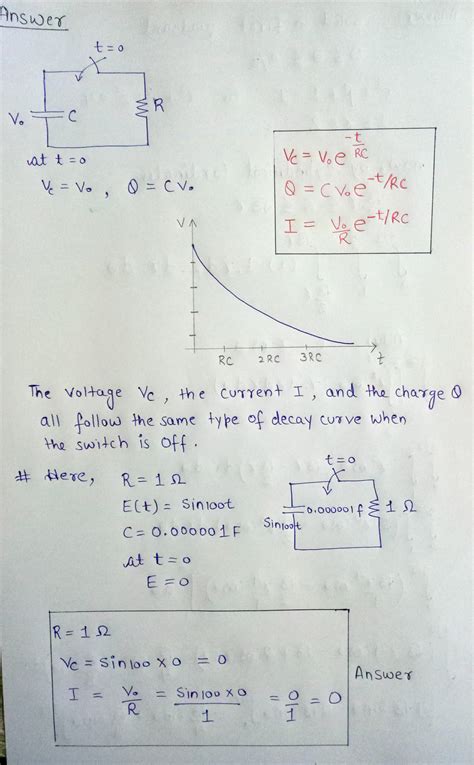 Answer
t=0
V₀
C
R
at t=0
Vc = V₀ , Q = CV₀
Vc = V₀ e^-t/RC
Q = C V₀ e^-t/RC
I = V₀/R e^-t/RC
V
RC 2RC 3RC t
The voltage Vc , the current I , and the charge Q
all follow the same type of decay curve when
the switch is off.
# Here, R = 1 Ω
E(t) = Sin100t
C = 0.000001F
at t=0
E=0
t=0
Sin100t
0.000001f
1 Ω
R = 1 Ω
Vc = Sin100 x 0 = 0
I = V₀/R = Sin100 x 0/1 = 0/1 = 0
Answer